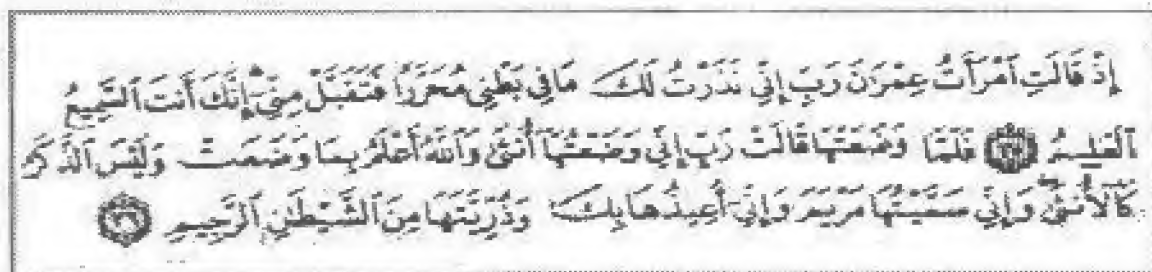 إِذْ قَالَتِ ٱمْرَأَتُ عِمْرَٰنَ رَبِّ إِنِّي نَذَرْتُ لَكَ مَا فِي بَطْنِي مُحَرَّرًا فَتَقَبَّلْ مِنِّيٓ إِنَّكَ أَنتَ ٱلسَّمِيعُ
ٱلْعَلِيمُ ﴿٣٥﴾ فَلَمَّا وَضَعَتْهَا قَالَتْ رَبِّ إِنِّي وَضَعْتُهَآ أُنثَىٰ وَٱللَّهُ أَعْلَمُ بِمَا وَضَعَتْ وَلَيْسَ ٱلذَّكَرُ
كَٱلْأُنثَىٰ وَإِنِّي سَمَّيْتُهَا مَرْيَمَ وَإِنِّيٓ أُعِيذُهَا بِكَ وَذُرِّيَّتَهَا مِنَ ٱلشَّيْطَٰنِ ٱلرَّجِيمِ ﴿٣٦﴾